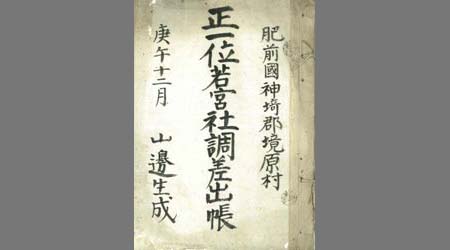 肥前國神埼郡境原村
正一位若宮社調差出帳
庚午十二月
山邊生成